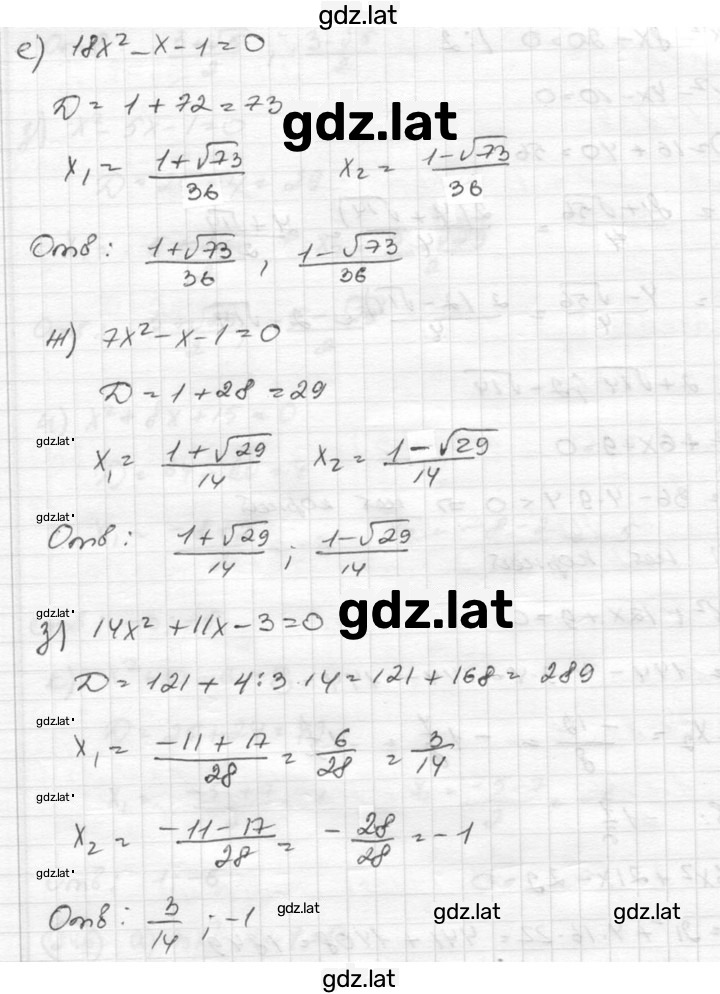 gdz.lat
е) 18x² - x - 1 = 0
D = 1 + 72 = 73
gdz.lat
x₁ = (1+√73)/36   x₂ = (1-√73)/36
Отв: (1+√73)/36 , (1-√73)/36
ж) 7x² - x - 1 = 0
D = 1 + 28 = 29
gdz.lat
x₁ = (1+√29)/14   x₂ = (1-√29)/14
gdz.lat
Отв: (1+√29)/14 ; (1-√29)/14
з) 14x² + 11x - 3 = 0
gdz.lat
D = 121 + 4·3·14 = 121 + 168 = 289
gdz.lat
x₁ = (-11+17)/28 = 6/28 = 3/14
gdz.lat
x₂ = (-11-17)/28 = -28/28 = -1
gdz.lat
Отв: 3/14 ; -1
gdz.lat gdz.lat gdz.lat
gdz.lat